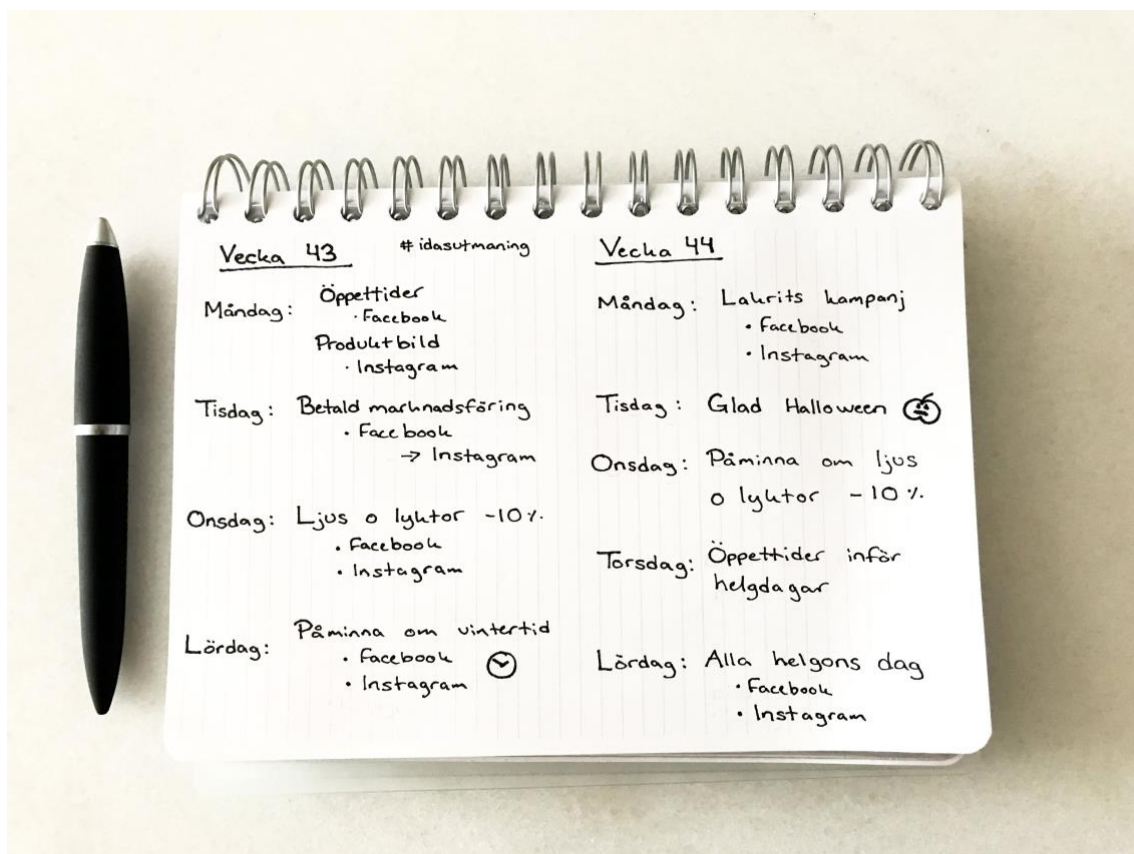 Vecka 43 #idasutmaning
Måndag: Öppettider
· Facebook
Produktbild
· Instagram
Tisdag: Betald marknadsföring
· Facebook
→ Instagram
Onsdag: Ljus o lyktor -10%
· Facebook
· Instagram
Lördag: Påminna om vintertid
· Facebook
· Instagram
Vecka 44
Måndag: Lakrits kampanj
· Facebook
· Instagram
Tisdag: Glad Halloween
Onsdag: Påminna om ljus
o lyktor -10%
Torsdag: Öppettider inför
helgdagar
Lördag: Alla helgons dag
· Facebook
· Instagram